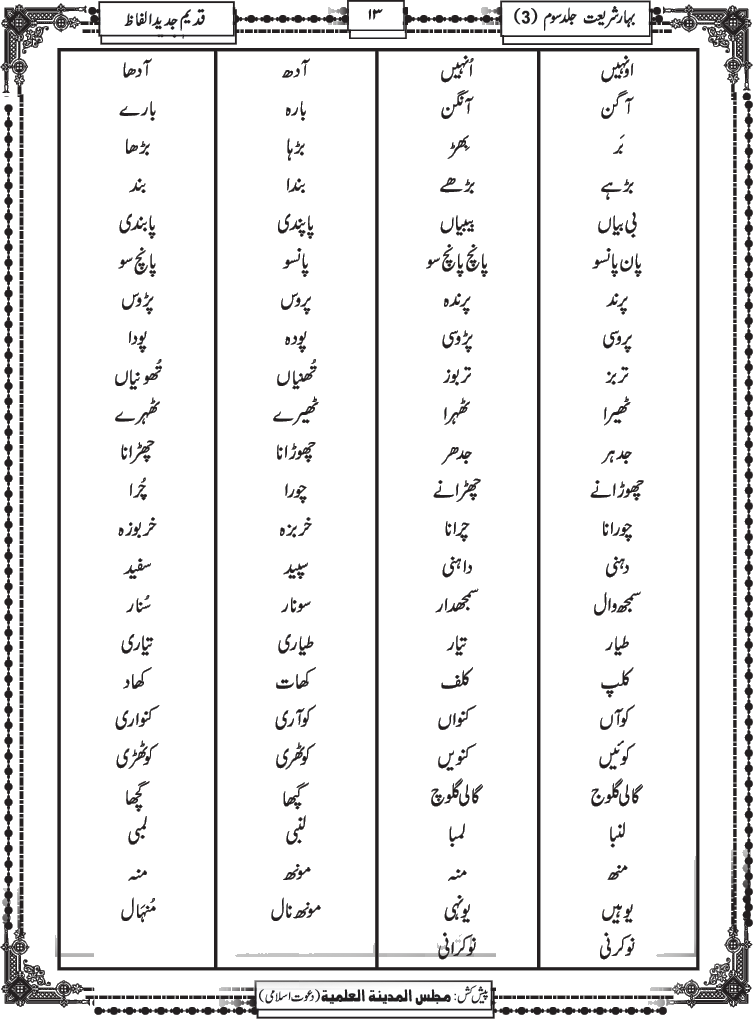 بہارِشریعت جلدسوم (3) ۱۳ قدیم جدیدالفاظ
اونہیں اُنہیں آدھ آدھا
آگن آنگن بارہ بارے
بَر بھڑ بڑہا بڑھا
بڑہے بڑھے بندا بند
بی بیاں بیبیاں پاپندی پابندی
پان پانسو پانچ پانچ سو پانسو پانچ سو
پرند پرندہ پروس پڑوس
پروسی پڑوسی پودہ پودا
تربز تربوز تُھنیاں تُھونیاں
ٹھیرا ٹھہرا ٹھیرے ٹھہرے
جدہر جدھر چھوڑانا چھڑانا
چھوڑانے چھڑانے چورا چُرا
چورانا چُرانا خربزہ خربوزہ
دہنی داہنی سپید سفید
سمجھ وال سمجھدار سونار سُنار
طیار تیّار طیاری تیّاری
کلپ کلف کھات کھاد
کوآں کنواں کوآری کنواری
کوئیں کنویں کوٹھری کوٹھڑی
گالی گلوج گالی گلوچ گپھا گچھا
لنبا لمبا لنبی لمبی
منھ منہ مونھ منہ
یوہیں یونہی مونھ نال مُنہَال
نوکرنی نوکرانی
پیش کش: مجلس المدینۃ العلمیۃ (دعوت اسلامی)